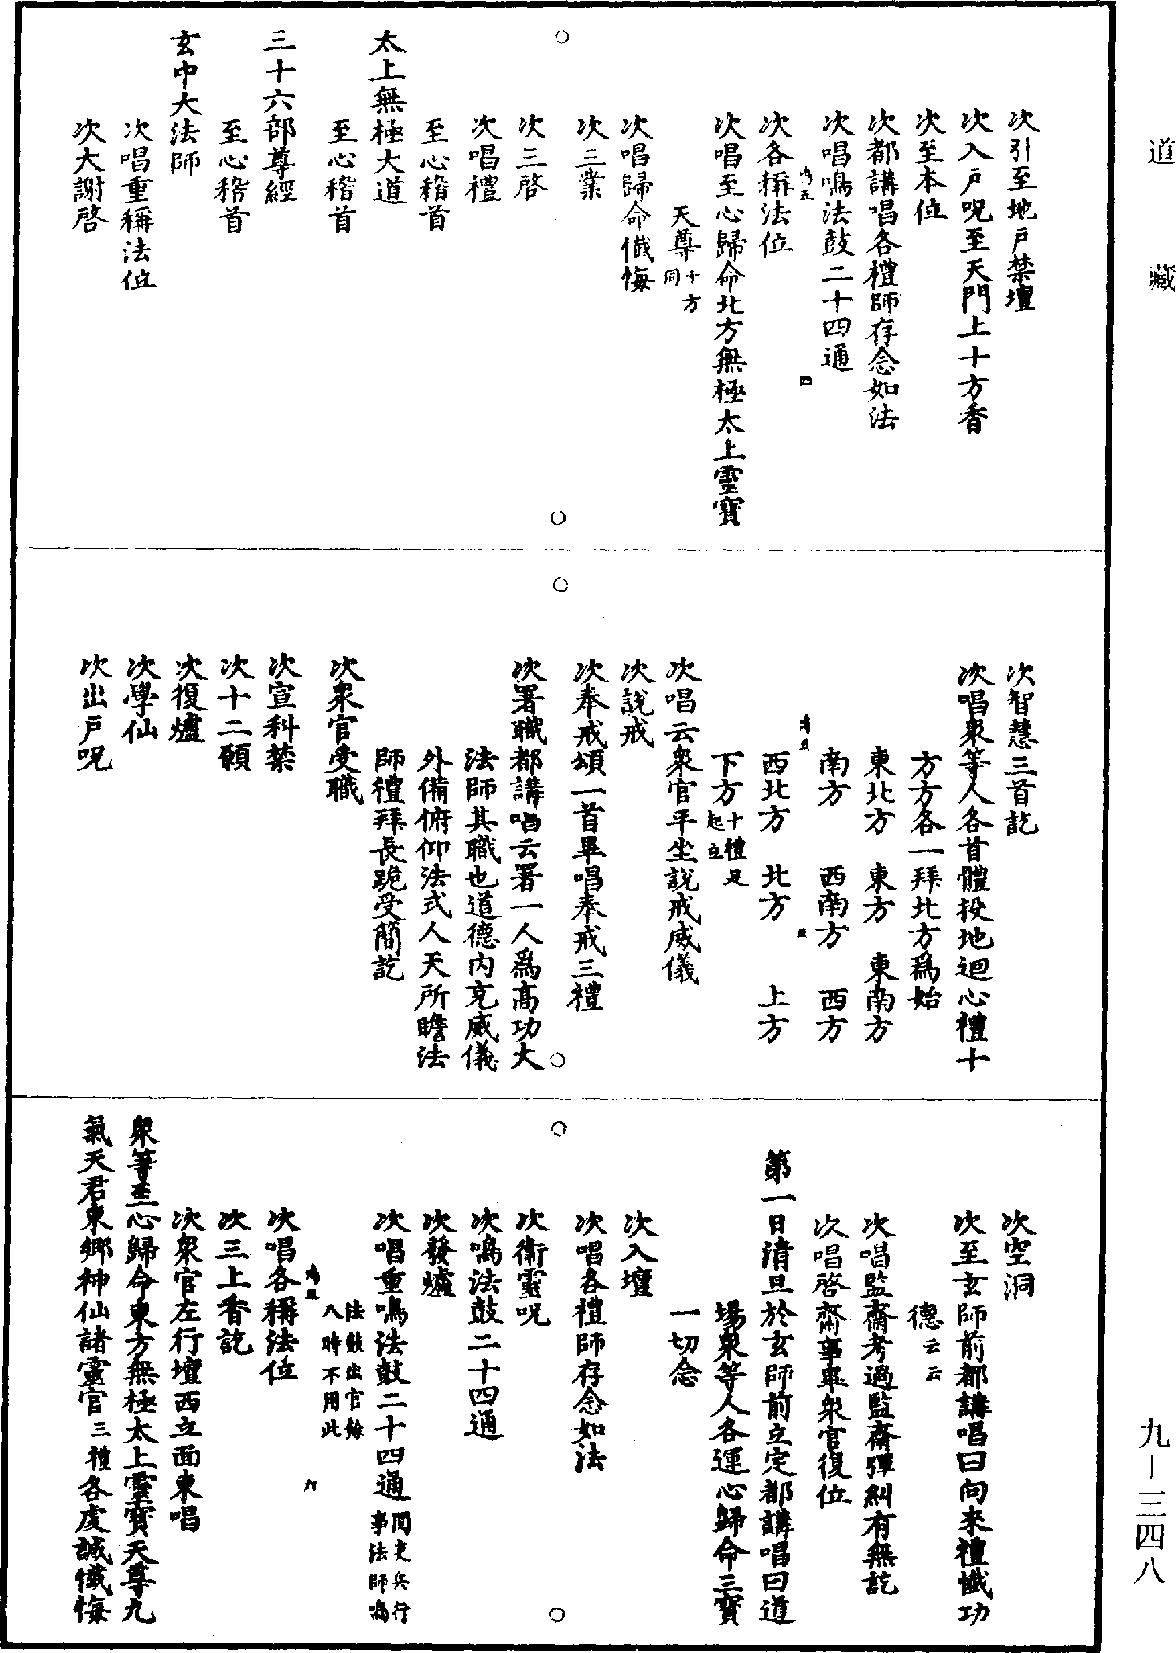 道藏
次引至地戶禁壇
次入戶呪至天門上十方香
次至本位
次都講唱各禮師存念如法
次唱鳴法鼓二十四通
四
次各稱法位
次唱至心歸命北方無極太上靈寶
天尊十方同
次唱歸命懺悔
次三業
次三啓
次唱禮
至心稽首
太上無極大道
至心稽首
三十六部尊經
至心稽首
玄中大法師
次唱重稱法位
次大謝啓
次智慧三首訖
次唱衆等人各首體投地迴心禮十
方方各一拜北方爲始
東北方 東方 東南方
南方 西南方 西方
西北方 北方 上方
下方十禮足起立
次唱云衆官平坐說戒威儀
次說戒
次奉戒頌一首畢唱奉戒三禮
次署職都講唱云署一人爲高功大
法師其職也道德內充威儀
外備俯仰法式人天所瞻法
師禮拜長跪受簡訖
次衆官受職
次宣科禁
次十二願
次復爐
次學仙
次出戶呪
次空洞
次至玄師前都講唱曰向來禮懺功
德云云
次唱監齋考過監齋彈糾有無訖
次唱啓齋事畢衆官復位
第一日清旦於玄師前立定都講唱曰道
場衆等人各運心歸命三寶
一切念
次入壇
次唱各禮師存念如法
次衛靈呪
次鳴法鼓二十四通
次發爐
次唱重鳴法鼓二十四通間吏兵行事法師鳴
法鼓出官餘八時不用此
六
次唱各稱法位
次三上香訖
次衆官左行壇西立面東唱
衆等至心歸命東方無極太上靈寶天尊九
氣天君東鄉神仙諸靈官三禮各虔誠懺悔
九－三四八